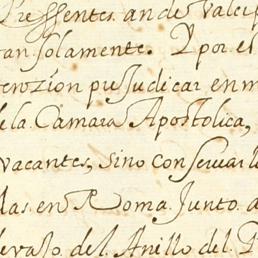 Pressentes. an de Valer p
tan solamente. Y por el
erozion pu Judicar en m
de la Camara Apostolica,
vacantes, sino conseruar l
las en Roma Junto a
deuajo del Anillo del P